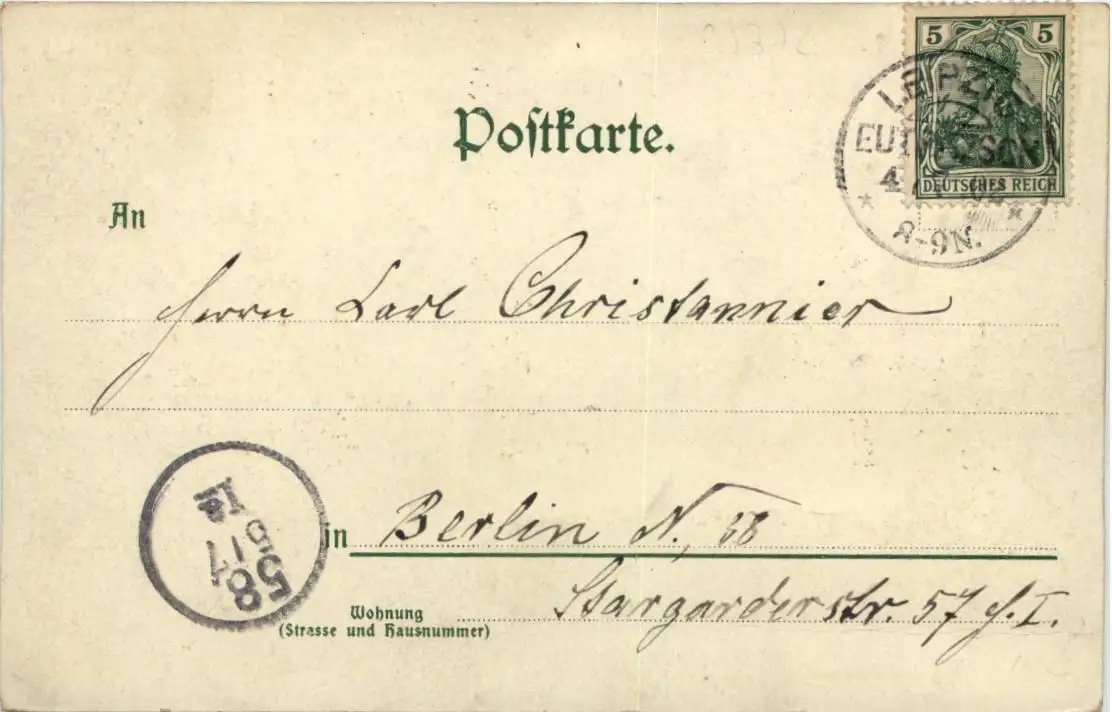 5 5
DEUTSCHES REICH
LEIPZIG
EUTRITZSCH
8-9N.
Postkarte.
An
Herrn Carl Christannier
in Berlin N. 58
Stargarderstr. 57 I.
Wohnung
(Strasse und Hausnummer)
58